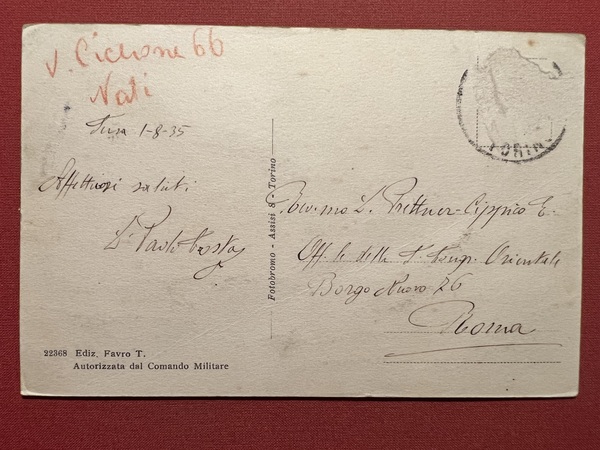 v. Ciclone 66
Nati
Susa 1-8-35
Affettuosi saluti
D. Paolo
Rev.mo D. Prettner-Cippico E.
Off.le della S. Congr. Orientale
Borgo Nuovo 76
Roma
Fotobromo - Assisi 8 - Torino
22368 Ediz. Favro T.
Autorizzata dal Comando Militare
TORIN